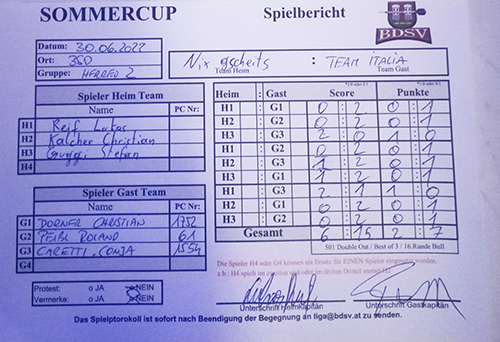 SOMMERCUP Spielbericht
BDSV
Datum: 30.06.2022
Ort: BSD
Gruppe: HERREN 2
Nix gscheits : TEAM ITALIA
Team Heim Team Gast
Spieler Heim Team
Name PC Nr:
H1 Reif Lukas
H2 Kalcher Christian
H3 Guggi Stefan
H4
Spieler Gast Team
Name PC Nr:
G1 DORNER CHRISTIAN 1752
G2 FEIBL ROLAND 61
G3 CARETTI SONJA 1554
G4
Heim : Gast Score Punkte
H1 : G1 0 : 2 0 : 1
H2 : G2 0 : 2 0 : 1
H3 : G3 2 : 0 1 : 0
H1 : G2 0 : 2 0 : 1
H2 : G3 1 : 2 0 : 1
H3 : G1 1 : 2 0 : 1
H1 : G3 2 : 1 1 : 0
H2 : G1 0 : 2 0 : 1
H3 : G2 0 : 2 0 : 1
Gesamt 6 : 15 2 : 7
501 Double Out / Best of 3 / 16 Runde Bull
Die Spieler H4 oder G4 können als Ersatz für EINEN Spieler eingesetzt werden.
z.b.: H4 spielt im zweiten und/oder im dritten Drittel anstatt H2
Protest: o JA o NEIN
Vermerke: o JA o NEIN
Unterschrift Heimkapitän Unterschrift Gastkapitän
Das Spielprotokoll ist sofort nach Beendigung der Begegnung an liga@bdsv.at zu senden.